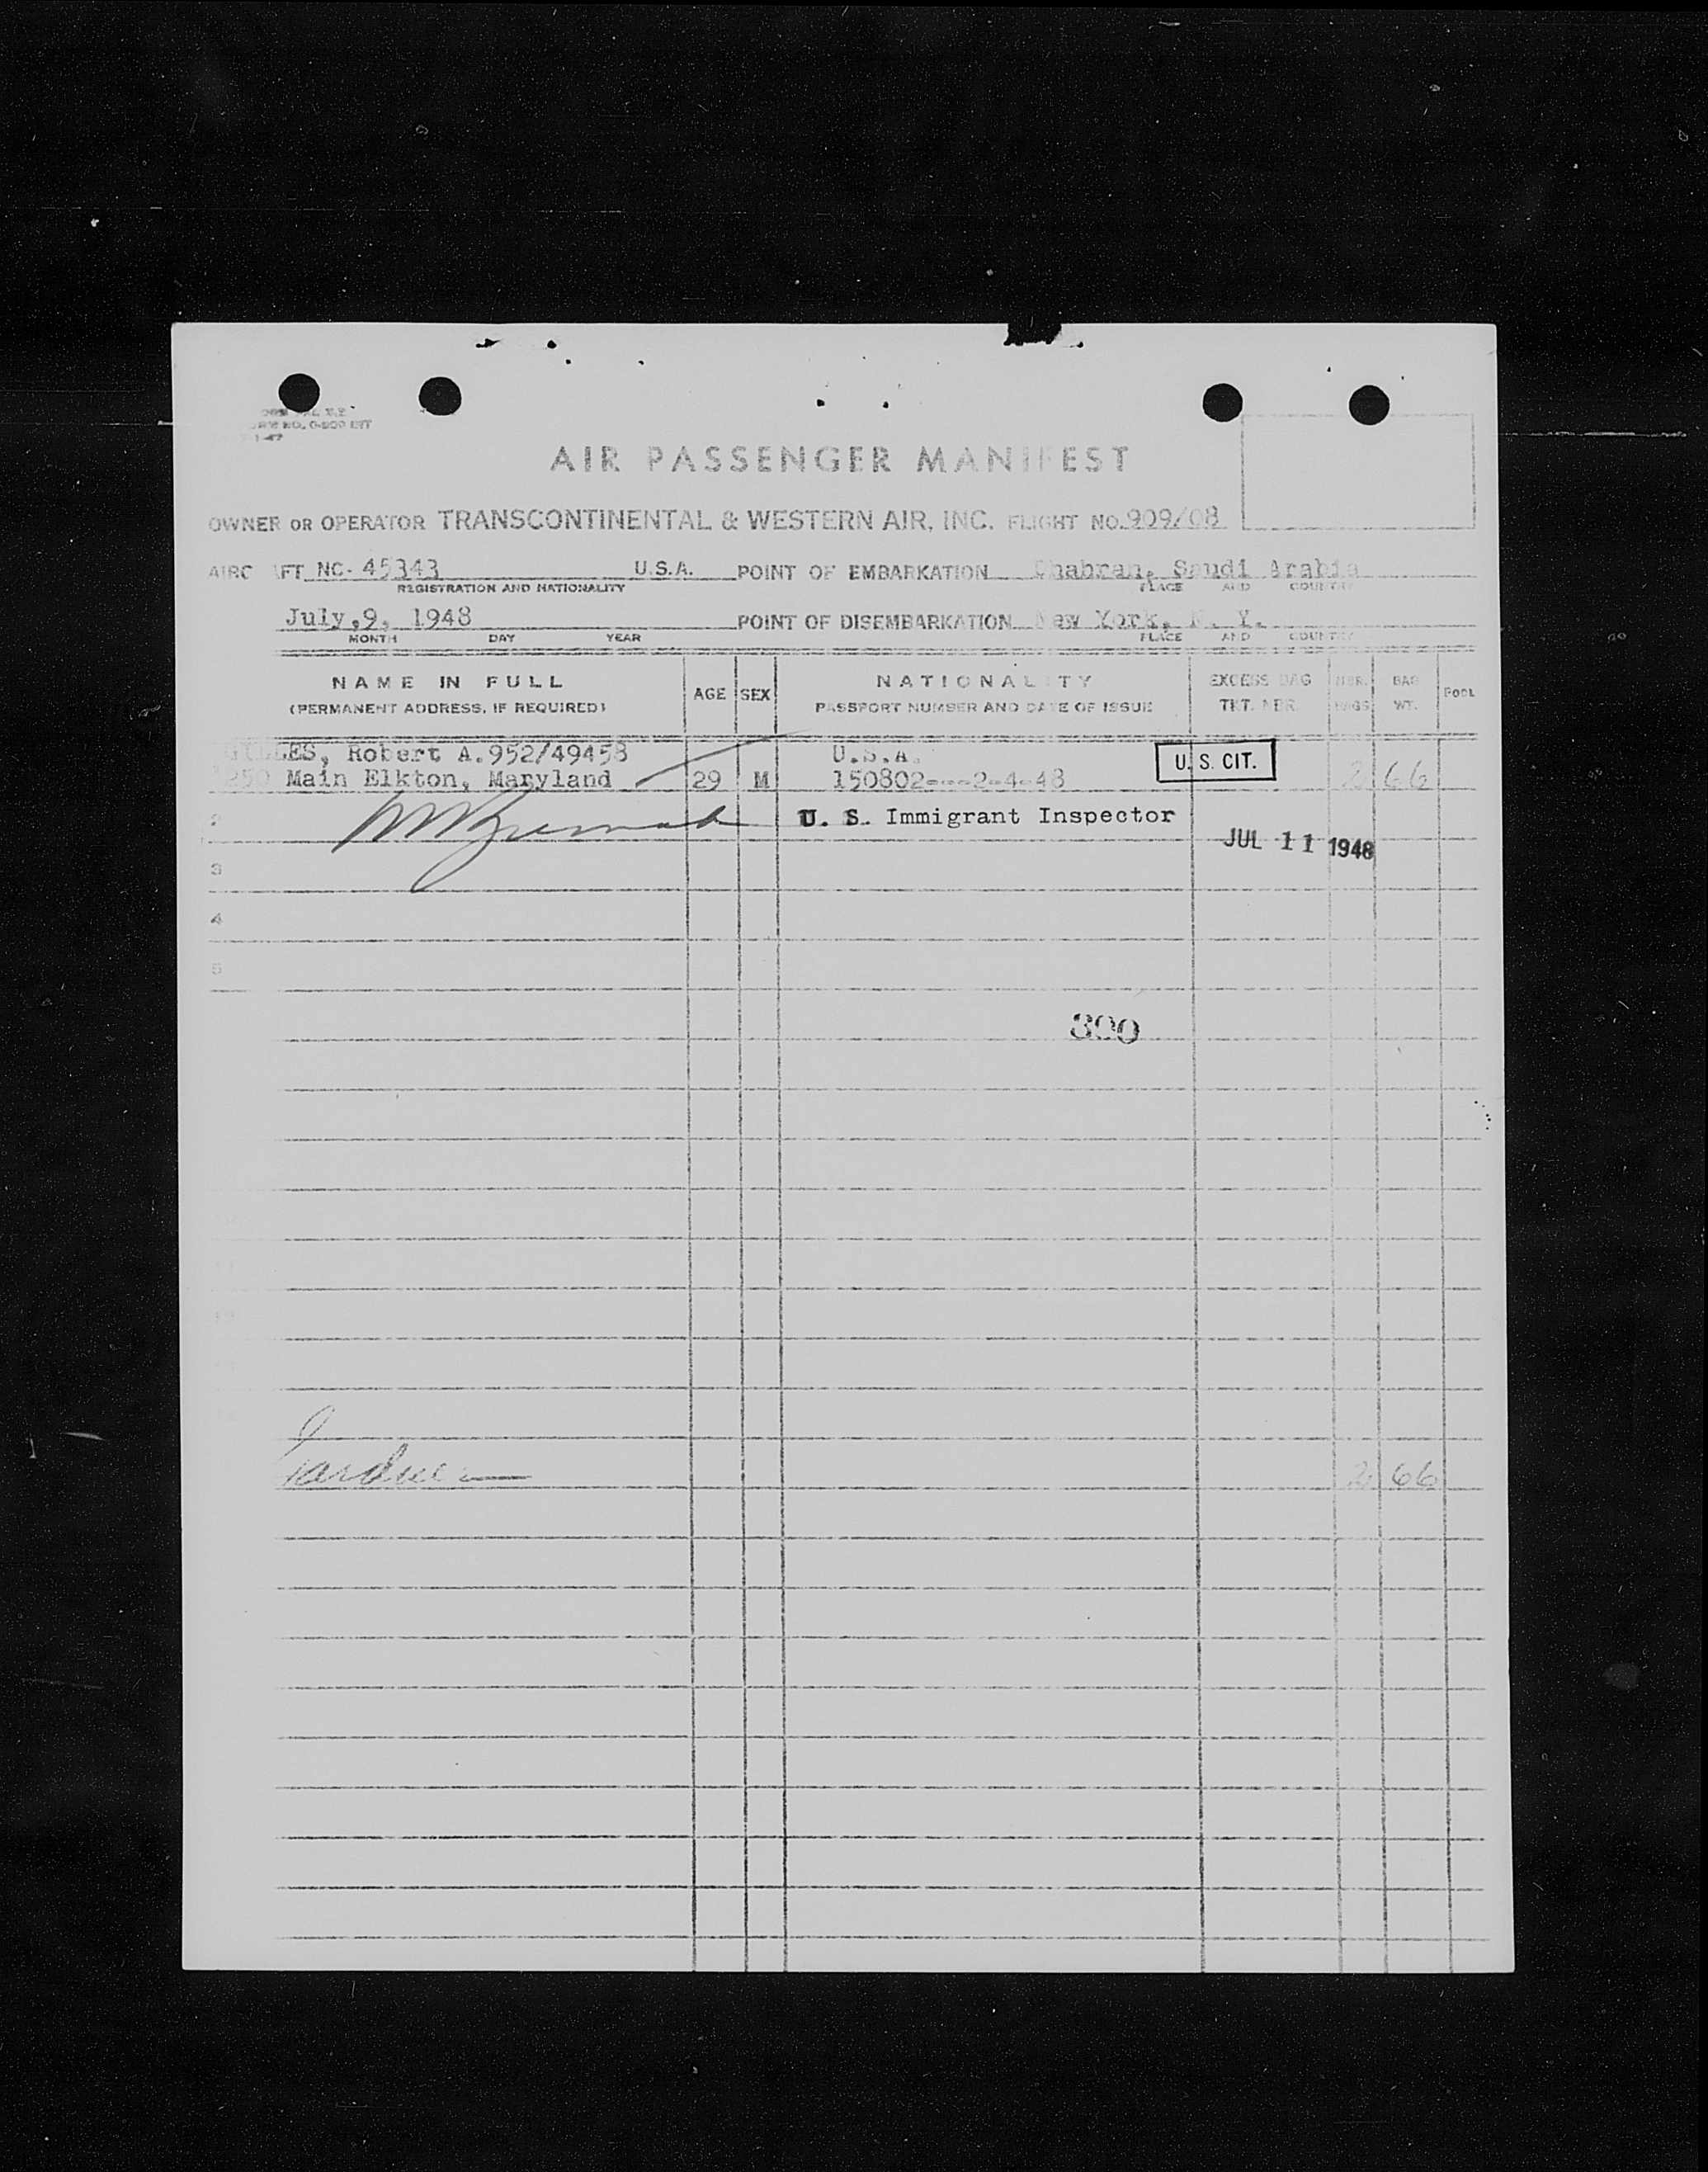 AIR PASSENGER MANIFEST
OWNER OR OPERATOR TRANSCONTINENTAL & WESTERN AIR, INC. FLIGHT NO. 909/08
AIRCRAFT NC- 45343 U.S.A. POINT OF EMBARKATION Dhahran, Saudi Arabia
REGISTRATION AND NATIONALITY PLACE AND COUNTRY
July,9, 1948 POINT OF DISEMBARKATION New York, N. Y.
MONTH DAY YEAR PLACE AND COUNTRY
NAME IN FULL AGE SEX NATIONALITY EXCESS BAG NBR. BAG POOL
(PERMANENT ADDRESS, IF REQUIRED) PASSPORT NUMBER AND DATE OF ISSUE TKT. NBR. BAGS WT.
Robert A.952/49458 U.S.A.
Main Elkton, Maryland 29 M 150802---2-4-48 U.S. CIT. 2 66
2 U. S. Immigrant Inspector
JUL 11 1948
3
4
5
Gardner 2 66